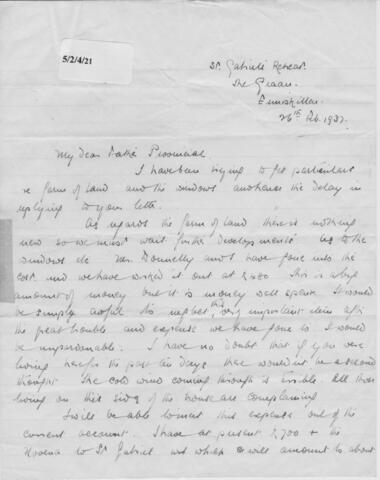 5/2/4/21
St. Gabriel's Retreat.
The Graan.
Enniskillen.
26th Feb. 1937.
My dear Father Provincial,
I have been trying to get particulars
re farm of land and the windows and hence the delay in
replying to your letter.
As regards the farm of land there is nothing
new so we must wait further developments. As to the
windows etc Mr. Donnelly and I have gone into the
cost and we have worked it out at £480. This is a big
amount of money but it is money well spent. It would
be simply awful to neglect this very important item after
the great trouble and expense we have gone to. It would
be unpardonable. I have no doubt that if you were
living here for the past six days there wouldn't be a second
thought. The cold wind coming through is terrible. All those
living on this side of the house are complaining.
I will be able to meet this expense out of the
current account. I have at present £700 + the
Novena to St Gabriel will amount to about